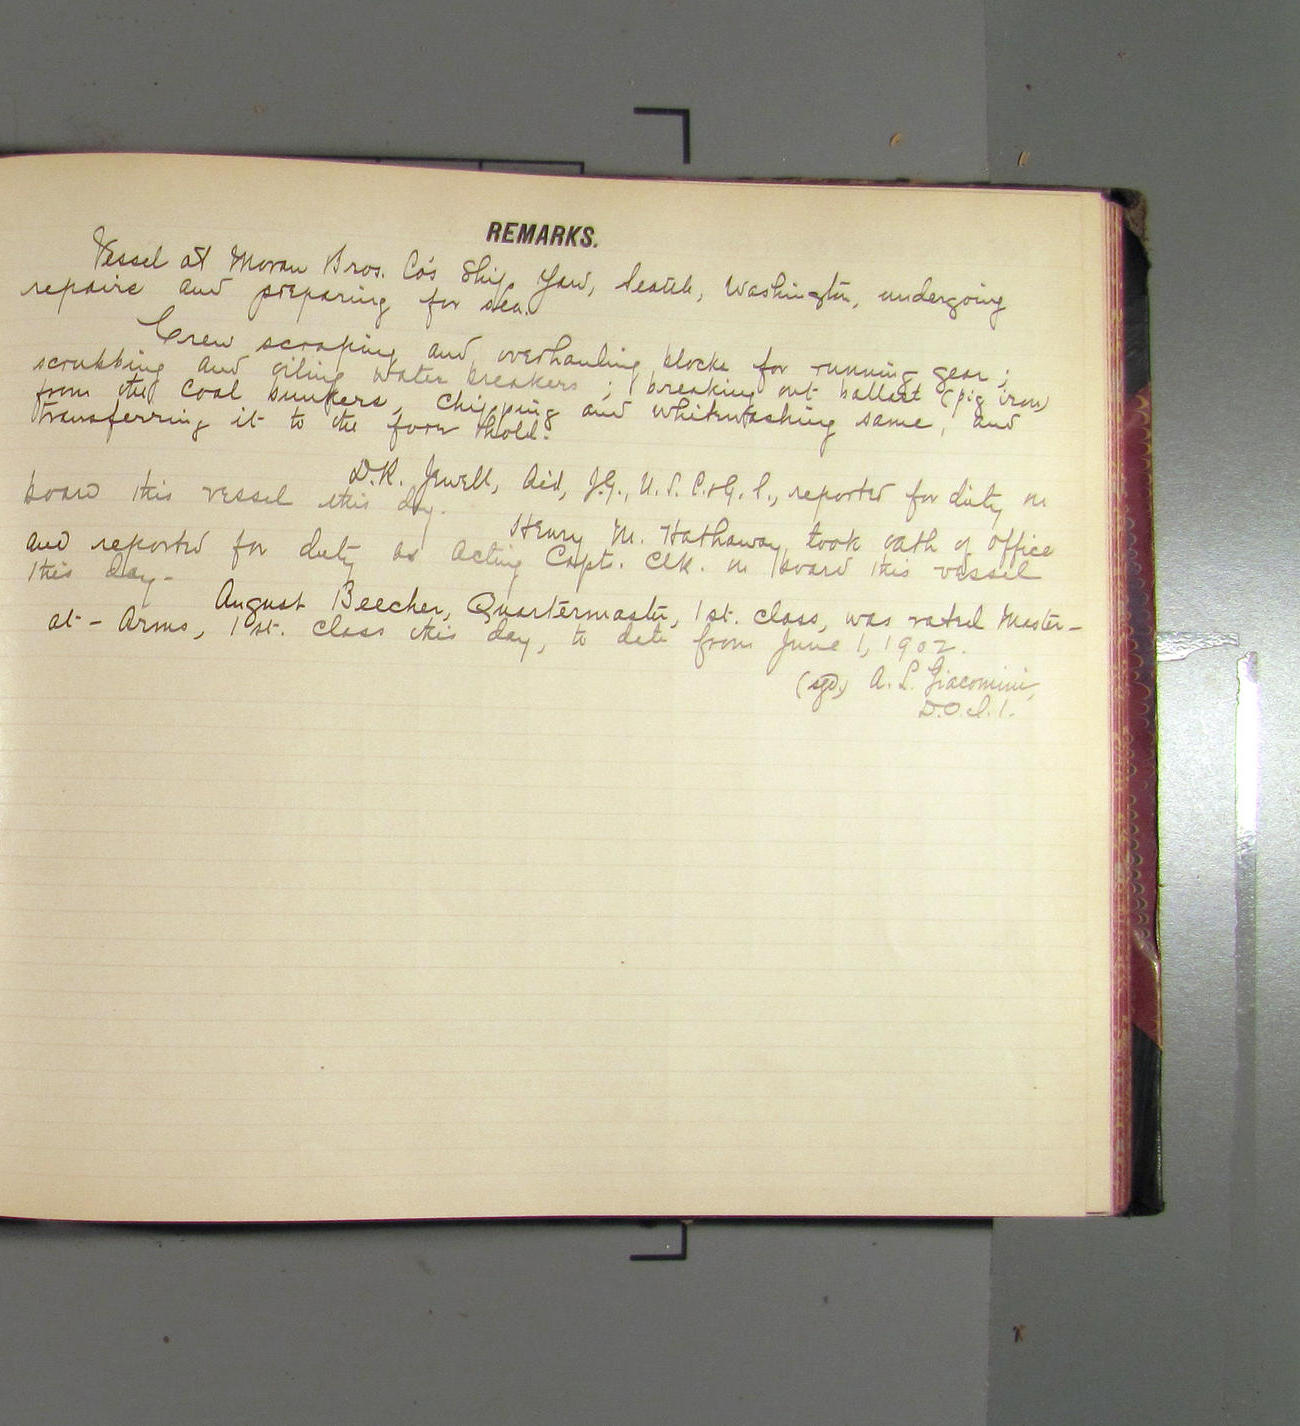 REMARKS.
Vessel at Moran Bros. Co's Ship Yard, Seattle, Washington, undergoing
repairs and preparing for sea.
Crew scraping and overhauling blocks for running gear;
scrubbing and oiling water breakers; breaking out ballast (pig iron)
from the coal bunkers, chipping and whitewashing same, and
transferring it to the fore hold.
D.R. Jewell, Aid, J.G., U.S.C.&G.S., reported for duty on
board this vessel this day.
Henry M. Hathaway took oath of office
and reported for duty as Acting Capt. Clk. on board this vessel
this day.
August Beecher, Quartermaster, 1st. class, was rated Master-
at-Arms, 1st. class this day, to date from June 1, 1902.
(sgd) A. L. Giacomini,
D.O.